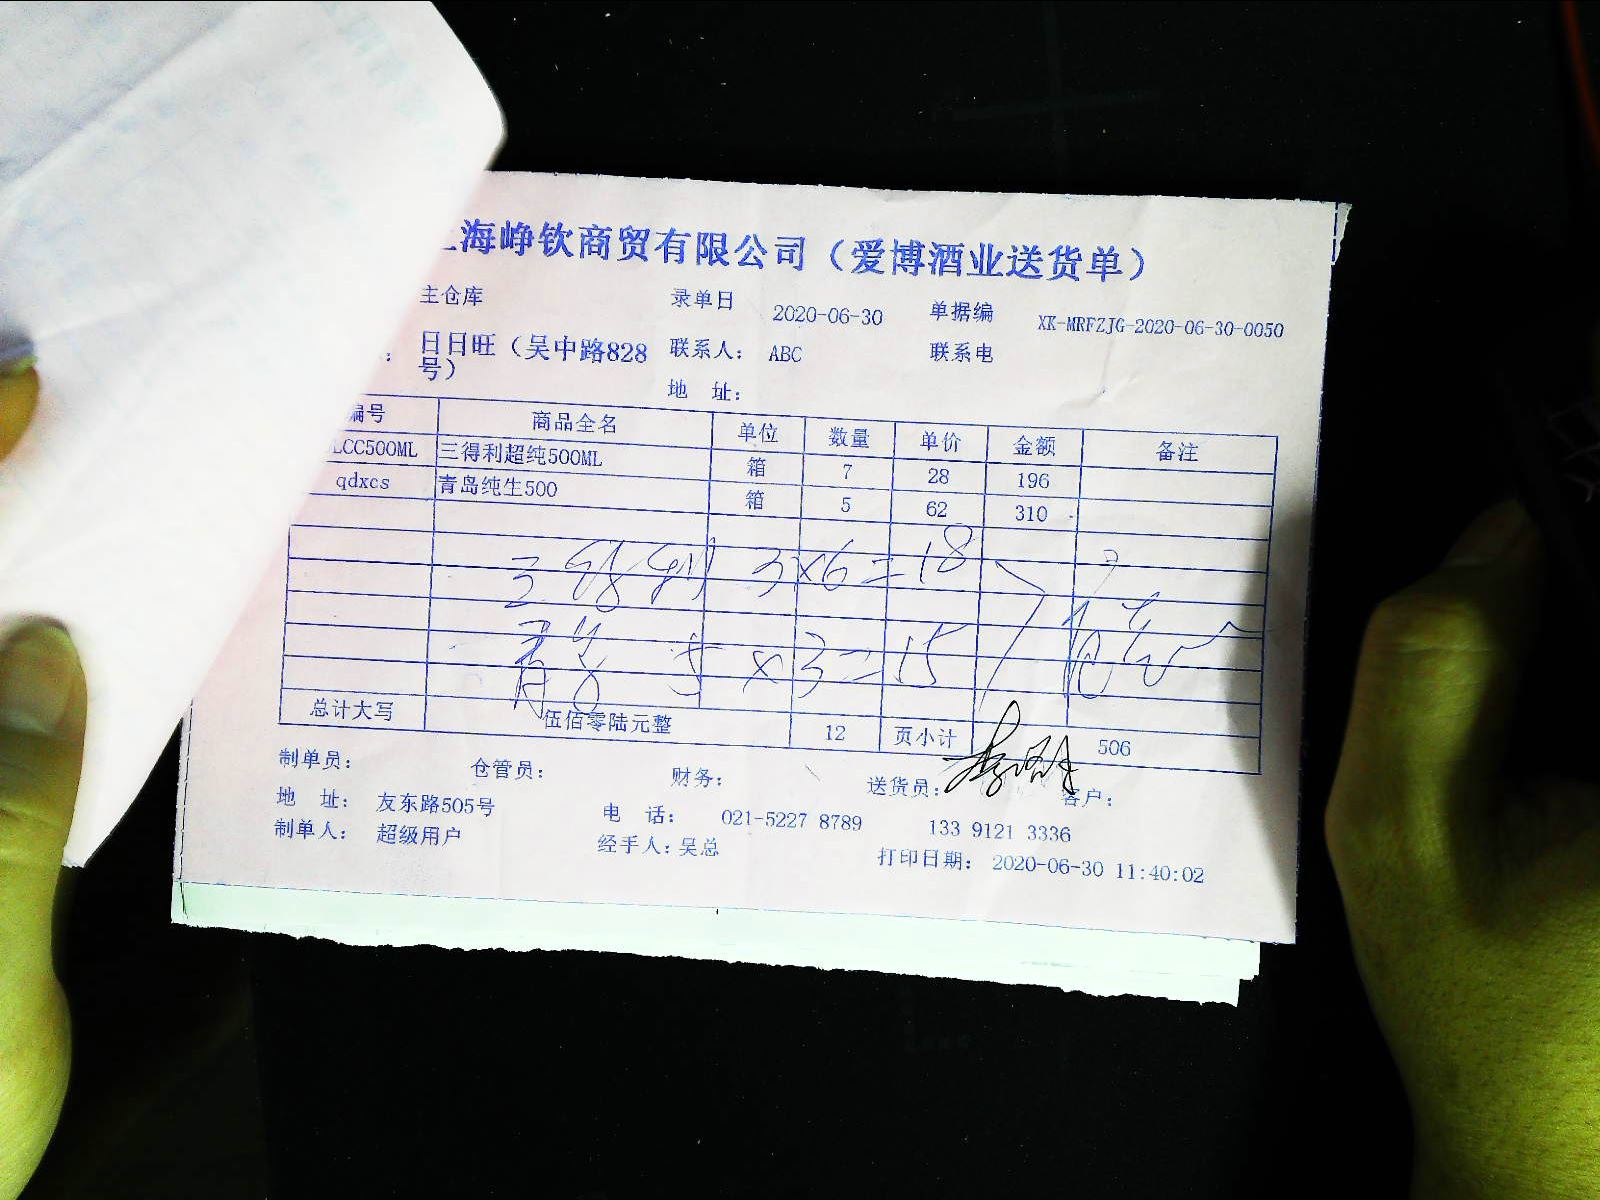 海峥钦商贸有限公司（爱博酒业送货单）
主仓库 录单日 2020-06-30 单据编 XK-MRFZJG-2020-06-30-0050
: 日日旺（吴中路828号） 联系人: ABC 联系电
地 址:
编号 商品全名 单位 数量 单价 金额 备注
LCC500ML 三得利超纯500ML 箱 7 28 196
qdxcs 青岛纯生500 箱 5 62 310
三得利 3×6=18
青岛 5×3=15
总计大写 伍佰零陆元整 12 页小计 506
制单员: 仓管员: 财务: 送货员: 客户:
地 址: 友东路505号 电 话: 021-5227 8789 133 9121 3336
制单人: 超级用户 经手人: 吴总 打印日期: 2020-06-30 11:40:02